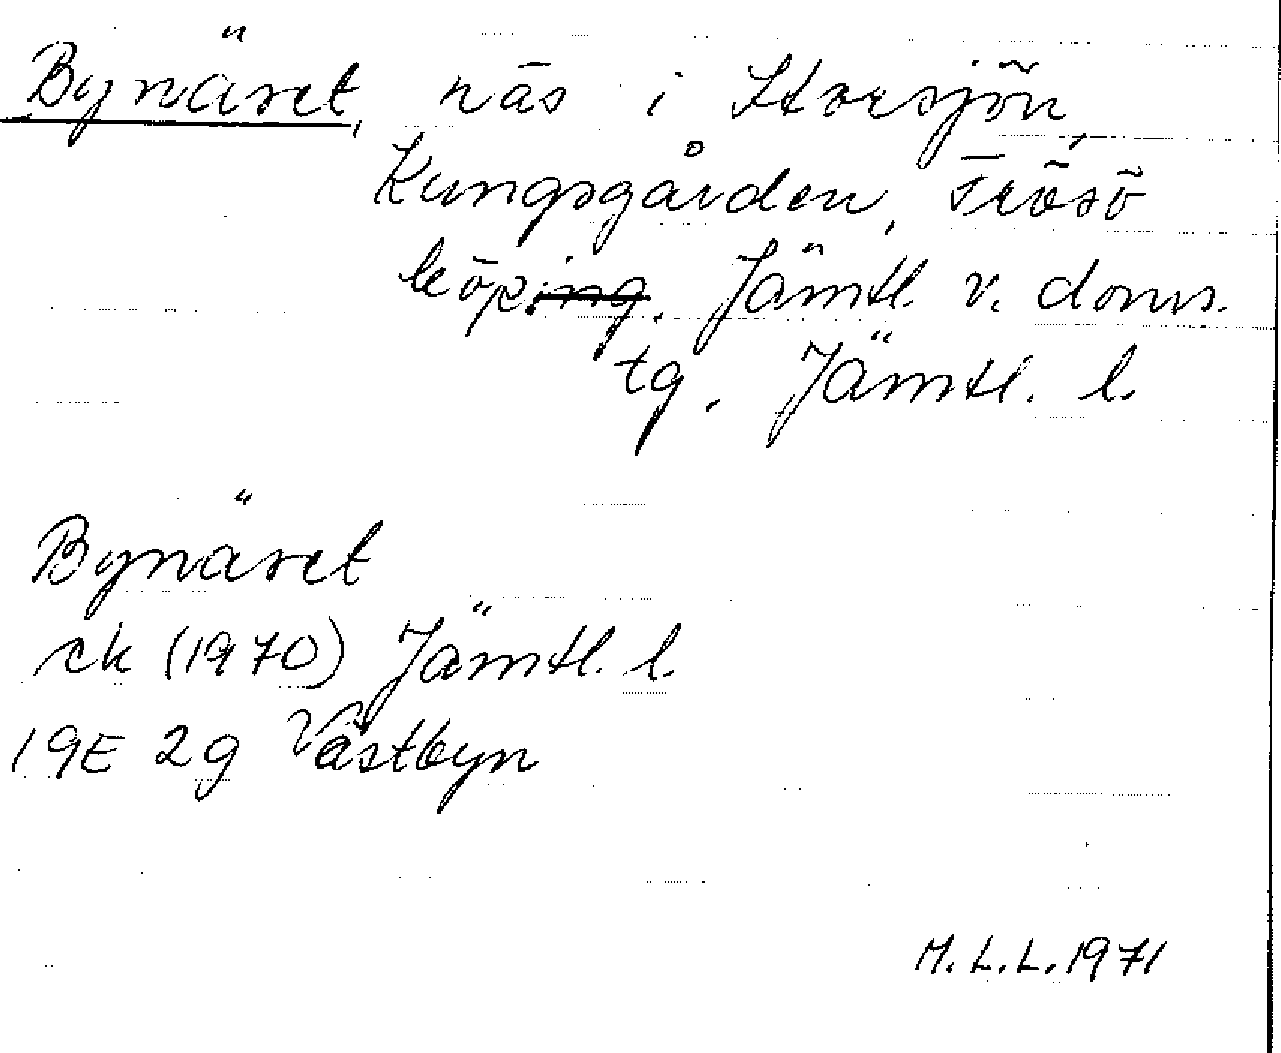 Bynäset, näs i Storsjön,
Kungsgården, Frösö
köping. Jämtl. v. doms.
tg. Jämtl. l.
Bynäset
ek (1970) Jämtl. l.
19E 2g Västbyn
M.L.L. 1971